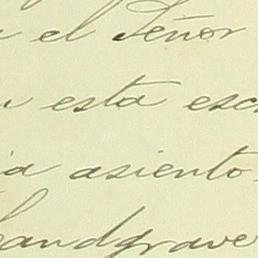 el Señor
esta esc
ia asiento
Landgrave